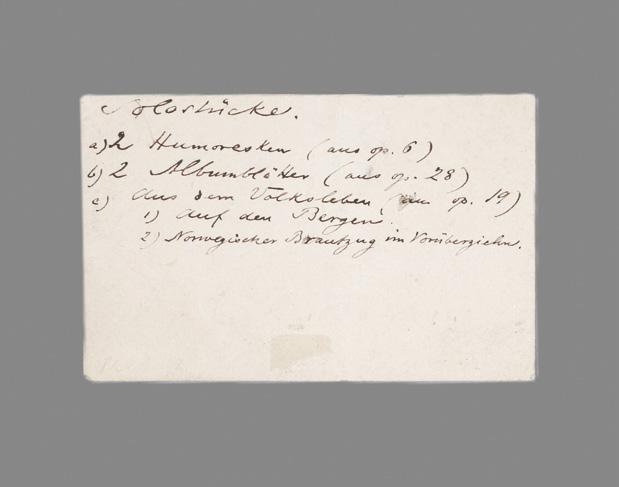 Solostücke.
a) 2 Humoresken (aus op. 6)
b) 2 Albumblätter (aus op. 28)
c) Aus dem Volksleben (aus op. 19)
1) Auf den Bergen.
2) Norwegischer Brautzug im Vorüberziehn.